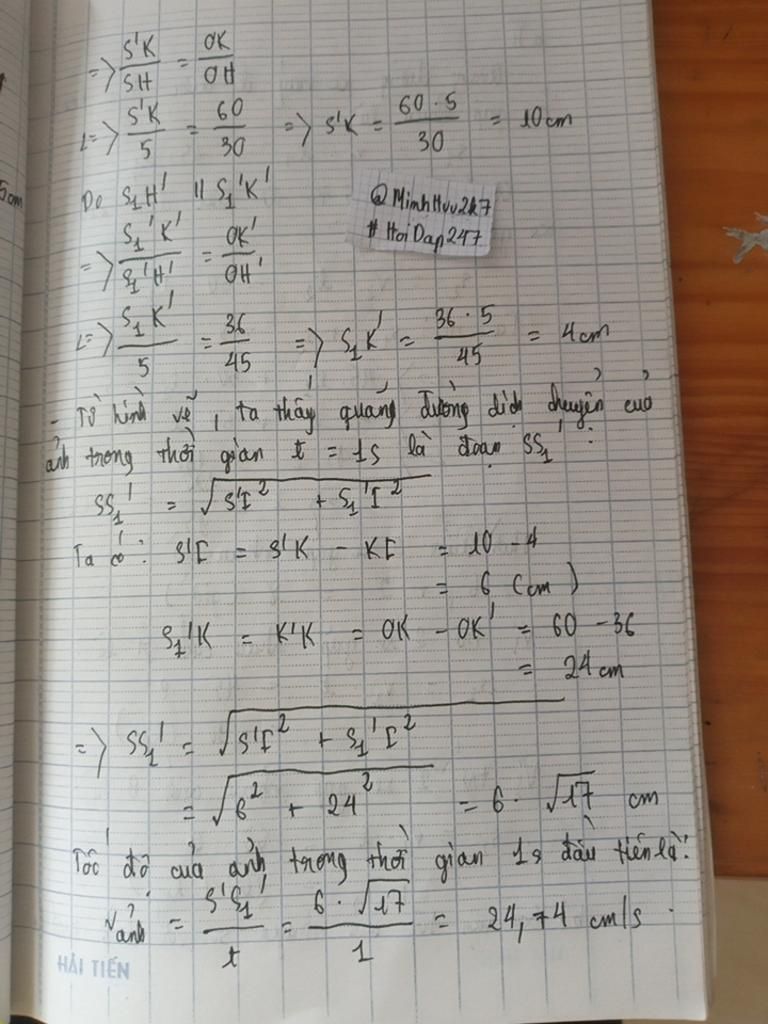 => S'K/SH = OK/OH
<=> S'K/5 = 60/30 => S'K = 60 . 5/30 = 10cm
Do S₁H' // S₁'K'
@MinhHuu2k7
#HoiDap247
=> S₁'K'/S₁'H' = OK'/OH'
<=> S₁K'/5 = 36/45 => S₁K' = 36 . 5/45 = 4cm
- Từ hình vẽ, ta thấy quãng đường dịch chuyển của
ảnh trong thời gian t = 1s là đoạn SS₁' :
SS₁' = √(S'I² + S₁'I²)
Ta có: S'I = S'K - KI = 10 - 4
= 6 (cm)
S₁'K = K'K = OK - OK' = 60 - 36
= 24cm
=> SS₁' = √(S'I² + S₁'I²)
= √(6² + 24²) = 6 . √17 cm
Tốc độ của ảnh trong thời gian 1s đầu tiên là:
v ảnh = S'S₁'/t = 6 . √17/1 = 24,74 cm/s .
HẢI TIẾN
5cm